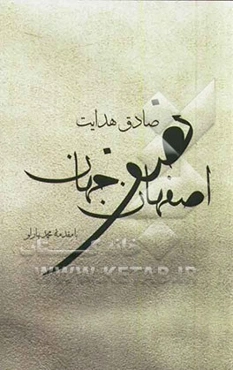 صادق هدایت
اصفهان نصف جهان
با مقدمه محمد بهارلو
خانه کتاب
WWW.KETAB.IR